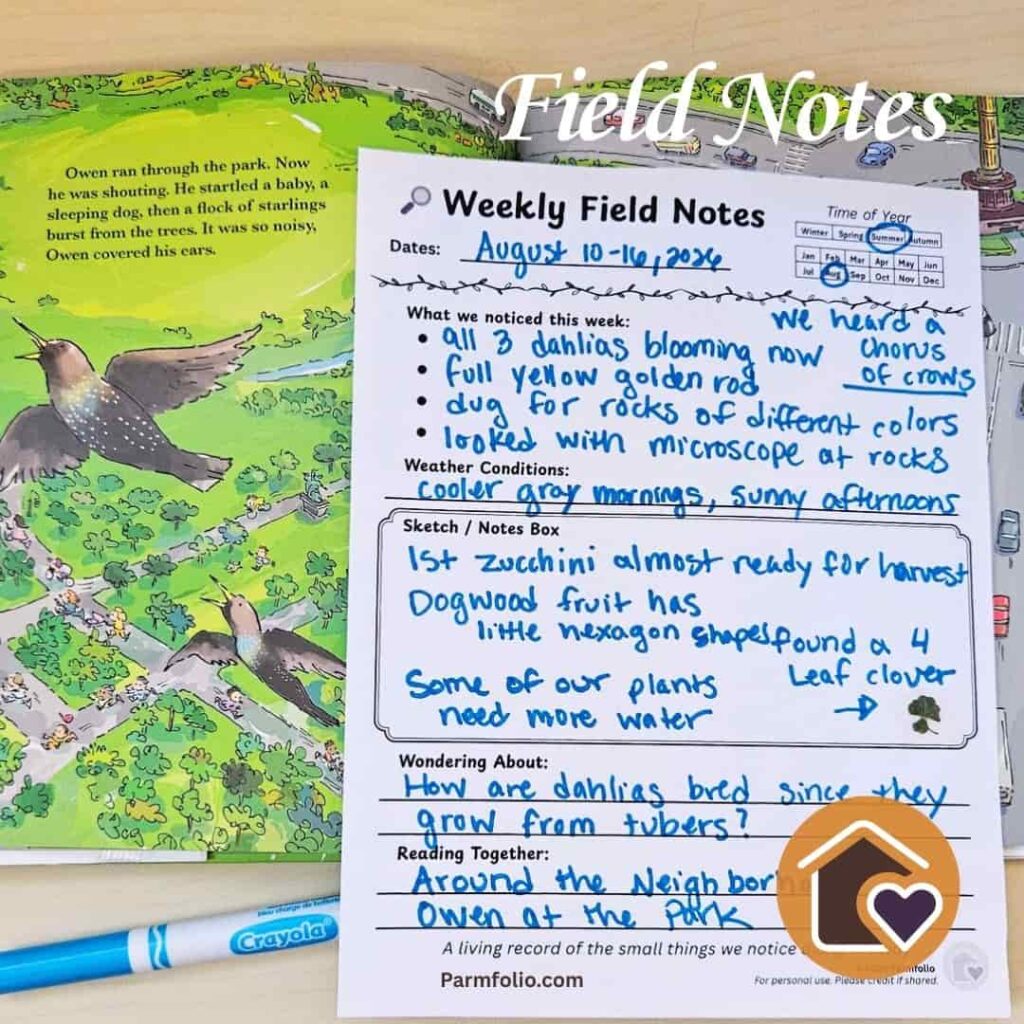 Field Notes
Owen ran through the park. Now
he was shouting. He startled a baby, a
sleeping dog, then a flock of starlings
burst from the trees. It was so noisy,
Owen covered his ears.
Weekly Field Notes
Time of Year
Winter Spring Summer Autumn
Jan Feb Mar Apr May Jun
Jul Aug Sep Oct Nov Dec
Dates: August 10-16, 2026
What we noticed this week:
• all 3 dahlias blooming now
• full yellow golden rod
• dug for rocks of different colors
• looked with microscope at rocks
we heard a
chorus
of crows
Weather Conditions:
cooler gray mornings, sunny afternoons
Sketch / Notes Box
1st zucchini almost ready for harvest
Dogwood fruit has
little hexagon shapes
found a 4
Leaf clover
Some of our plants
need more water
Wondering About:
How are dahlias bred since they
grow from tubers?
Reading Together:
Around the
Owen at the Park
A living record of the small things we notice
Parmfolio.com
For personal use. Please credit if shared.
Crayola